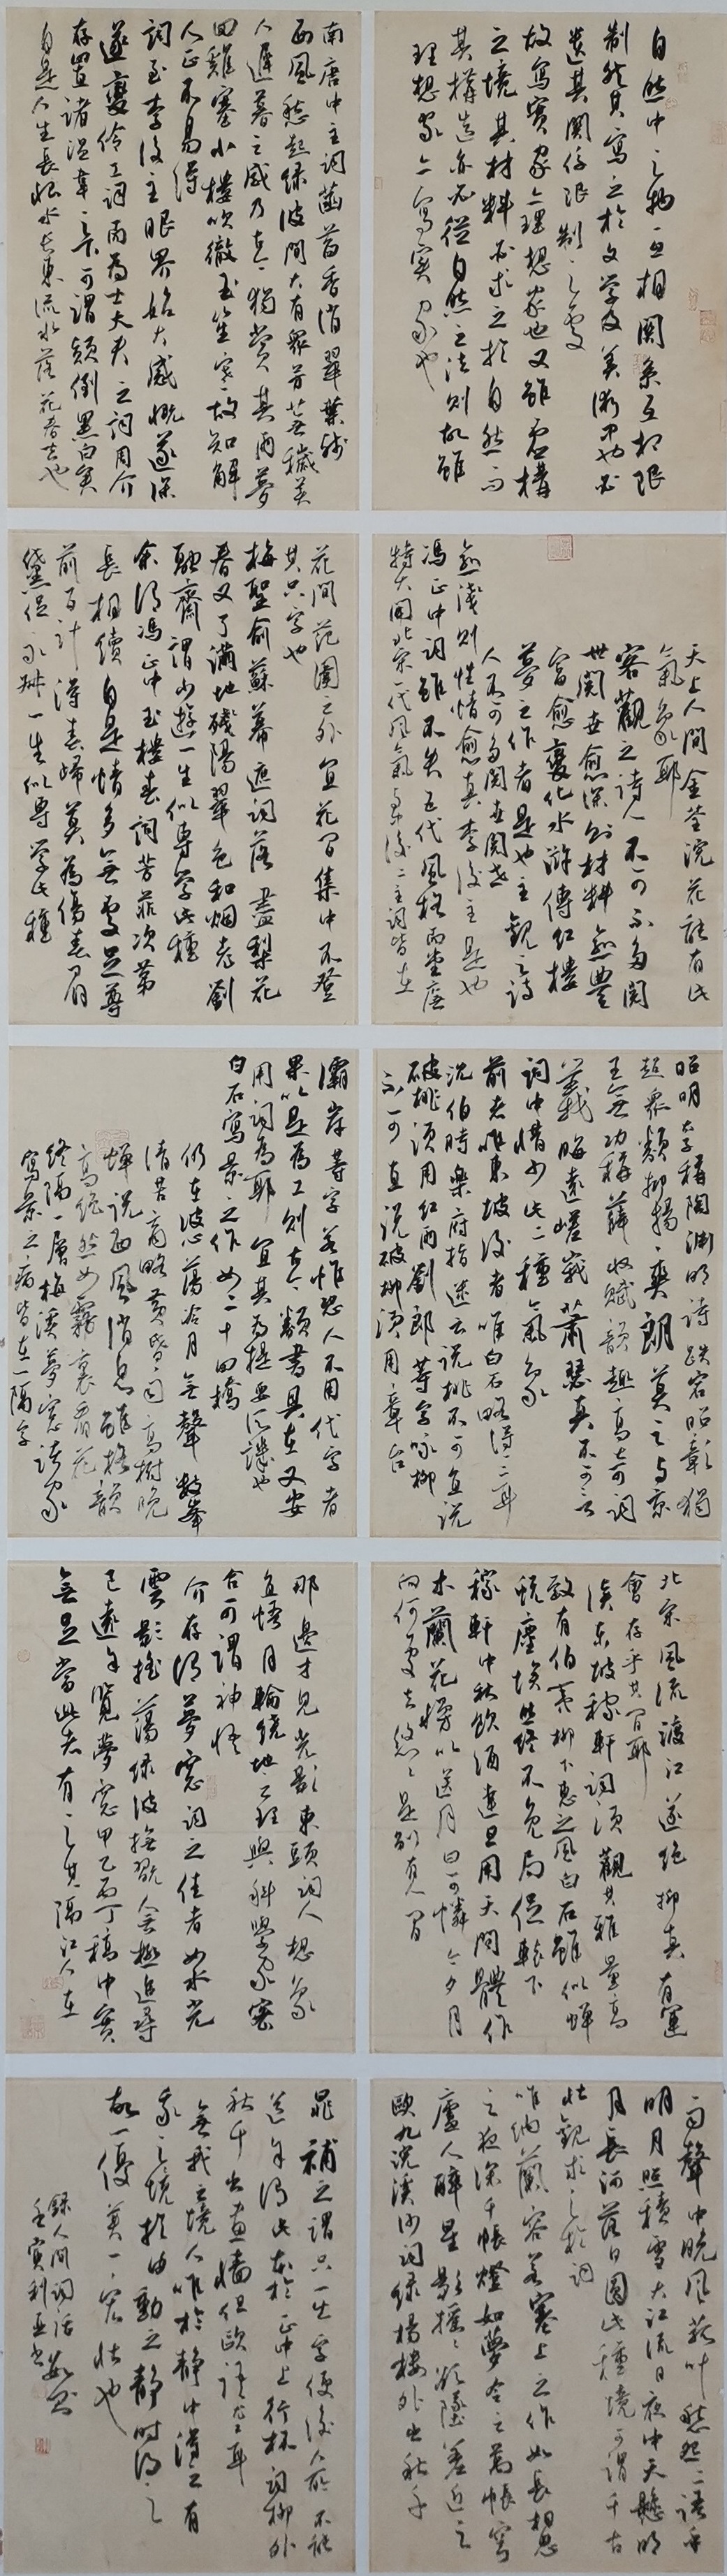 自然中之物互相關系互相限
制然其寫之於文學及美術中也必
遺其關係限制之處
故寫實家亦理想家也又雖虛構
之境其材料必求之於自然而
其構造亦必從自然之法則故雖
理想家亦寫實家也
南唐中主詞菡萏香消翠葉殘
西風愁起綠波間大有眾芳蕪穢美
人遲暮之感乃古今獨賞其雨夢
回雞塞小樓吹徹玉笙寒故知解
人正不易得
詞至李後主眼界始大感慨遂深
遂變伶工詞而為士大夫之詞周介
存置諸溫韋之下可謂顛倒黑白矣
自是人生長恨水長東流水落花春去也
天上人間金荃浣花能有此
氣象耶
客觀之詩人不可不多閱
世閱世愈深則材料愈豐
富愈變化水滸傳紅樓
夢之作者是也主觀之詩
人不可多閱世閱世
愈淺則性情愈真李後主是也
馮正中詞雖不失五代風格而堂廡
特大開北宋一代風氣與後二主詞皆在
花間範圍之外宜花間集中不登
其只字也
梅聖俞蘇幕遮詞落盡梨花
春又了滿地殘陽翠色和烟老劉
融齋謂少游一生似專學此種
余謂馮正中玉樓春詞芳菲次第
長相續自是情多無處足尊
前百計得春歸莫為傷春眉
黛促永叔一生似專學此種
昭明太子稱陶淵明詩跌宕昭彰獨
超眾類抑揚爽朗莫之與京
王無功稱薛收賦韻趣高奇詞
義晦遠嵯峨蕭瑟真不可言
詞中惜少此二種氣象
前者唯東坡後者唯白石略得一二耳
沈伯時樂府指迷云說桃不可直說
破桃須用紅雨劉郎等字詠柳
不可直說破柳須用章台
灞岸等字若惟恐人不用代字者
果以是為工則古今類書具在又安
用詞為耶宜其為提要所譏也
白石寫景之作如二十四橋
仍在波心蕩冷月無聲數峯
清苦商略黃昏雨高樹晚
蟬說西風消息雖格韻
高絕然如霧裏看花
終隔一層梅溪夢窗諸家
寫景之病皆在一隔字
北宋風流渡江遂絕抑真有運
會存乎其間耶
讀東坡稼軒詞須觀其雅量高
致有伯夷柳下惠之風白石雖似蟬
蛻塵埃然終不免局促轅下
稼軒中秋飲酒達旦用天問體作
木蘭花慢以送月曰可憐今夕月
向何處去悠悠是別有人間
那邊才見光影東頭詞人想象
直悟月輪繞地之理與科學家密
合可謂神悟
介存謂夢窗詞之佳者如水光
雲影搖蕩綠波撫玩無極追尋
已遠余覽夢窗甲乙丙丁稿中實
無足當此者有之其隔江人在
雨聲中晚風菰葉愁怨二語乎
明月照積雪大江流日夜中天懸明
月長河落日圓此種境可謂千古
壯觀求之於詞
唯納蘭容若塞上之作如長相思
之夜深千帳燈如夢令之萬帳穹
廬人醉星影搖搖欲墜差近之
歐九浣溪沙詞綠楊樓外出秋千
晁補之謂只一出字便後人所不能
道余謂此本於正中上行杯詞柳外
秋千出畫墻但歐語尤工耳
無我之境人唯於靜中得之有
我之境於由動之靜時得之
故一優美一宏壯也
錄人間詞話數則
壬寅利亞書